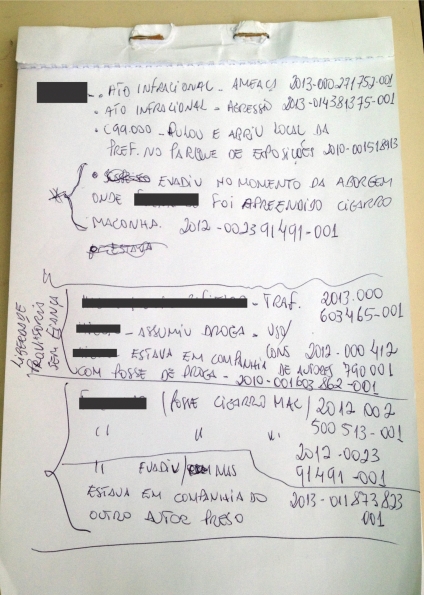 - . ATO INFRACIONAL - AMEAÇA 2013-000.271752-001
• ATO INFRACIONAL - AGRESSO 2013-014381375-001
• C99.000 - PULOU E ABRIU LOCAL DA
PREF. NO PARQUE DE EXPOSIÇÕES 2010-001518913
• EVADIU NO MOMENTO DA ABORGEM
ONDE FOI APREENDIDO CIGARRO
MACONHA. 2012-002391491-001
LIBERDADE
PROVISÓRIA
SEM FIANÇA
- TRAF. 2013.000
603465-001
- ASSUMIU DROGA - USO/
ESTAVA EM COMPANHIA DE AUTORES CONS 2012-000412
790001
COM POSSE DE DROGA - 2010-001603862-001
(POSSE CIGARRO MAC) 2012 002
" " " 500513-001
" EVADIU / MAS 2012-0023
91491-001
ESTAVA EM COMPANHIA DO 2013-011873823
OUTRO AUTOR PRESO 001